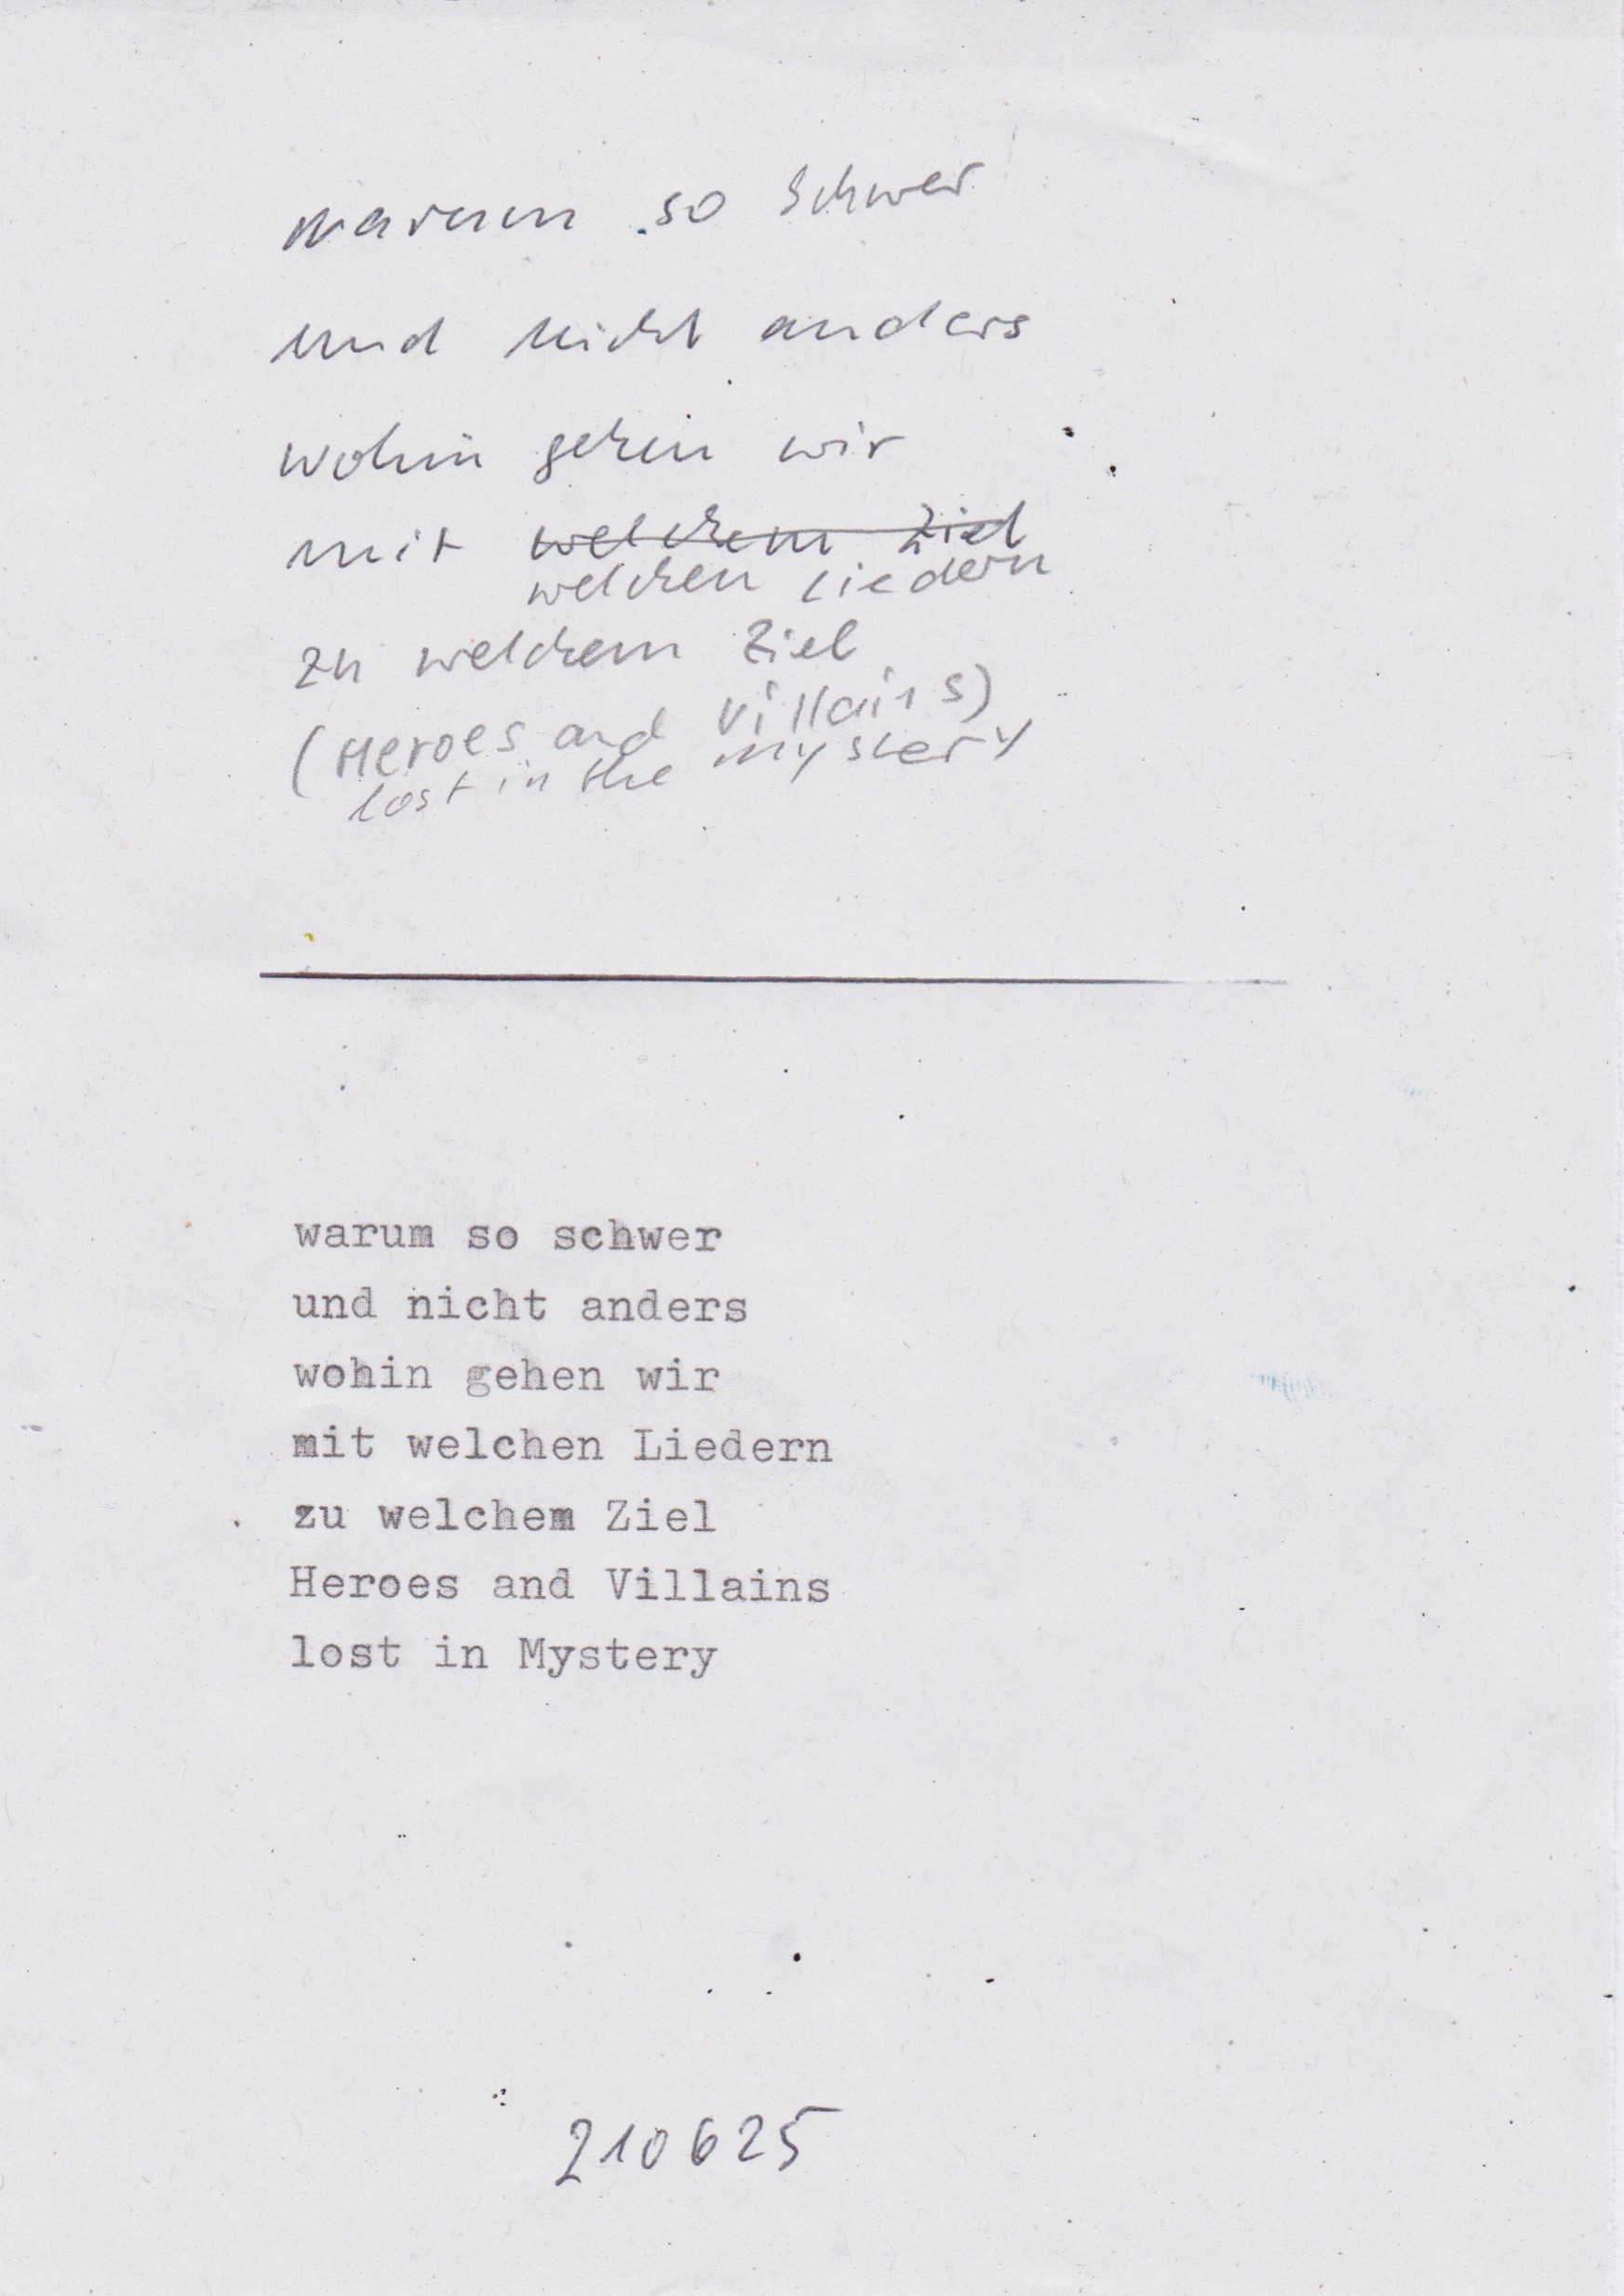 warum so schwer
und nicht anders
wohin gehen wir
mit welchem Ziel
welchen Liedern
zu welchem Ziel
(Heroes and Villains)
lost in the mystery
warum so schwer
und nicht anders
wohin gehen wir
mit welchen Liedern
zu welchem Ziel
Heroes and Villains
lost in Mystery
210625